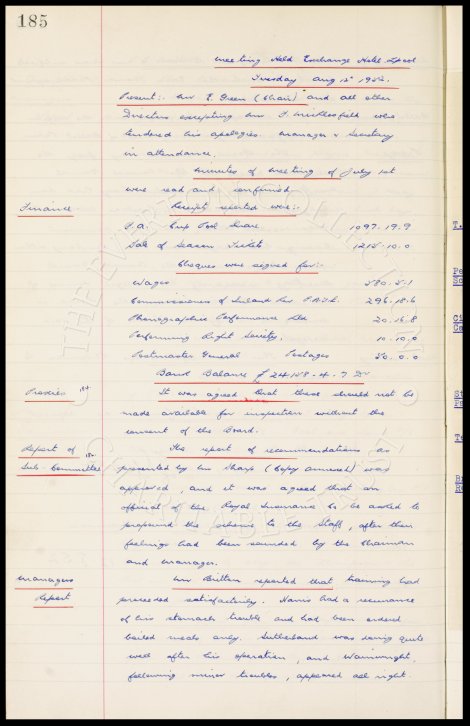 185
Meeting Held Exchange Hotel L'pool
Tuesday Aug 12th 1952.
Present:- Mr E. Green (Chair) and all other
Directors excepting Mr T. who
tendered his apologies. Manager & Secretary
in attendance.
Minutes of Meeting of July 1st
were read and confirmed.
Finance
Receipts reported were:-
F.A. Cup Pool Share 1097.19.9
Sale of Season Tickets 1215.10.0
Cheques were signed for:-
Wages 580.5.1
Commissioners of Inland Rev P.A.Y.E. 296.18.6
Phonographic Performance Ltd 20.16.8
Performing Right Society. 10.10.0
Postmaster General Postages 50.0.0
Bank Balance £24158-4-7 Dr
Proxies
It was agreed that these should not be
made available for inspection without the
consent of the Board.
Report of
Sub-Committee
The report of recommendations as
presented by Mr Sharp (Copy annexed) was
approved, and it was agreed that an
official of the Royal Insurance Co be asked to
propound the scheme to the Staff, after their
feelings had been sounded by the Chairman
and Manager.
Managers
Report
Mr Britton reported that training had
proceeded satisfactorily. Harris had a recurrence
of his stomach trouble and had been ordered
boiled meals only. Sutherland was doing quite
well after his operation, and Wainwright,
following minor troubles, appeared all right.